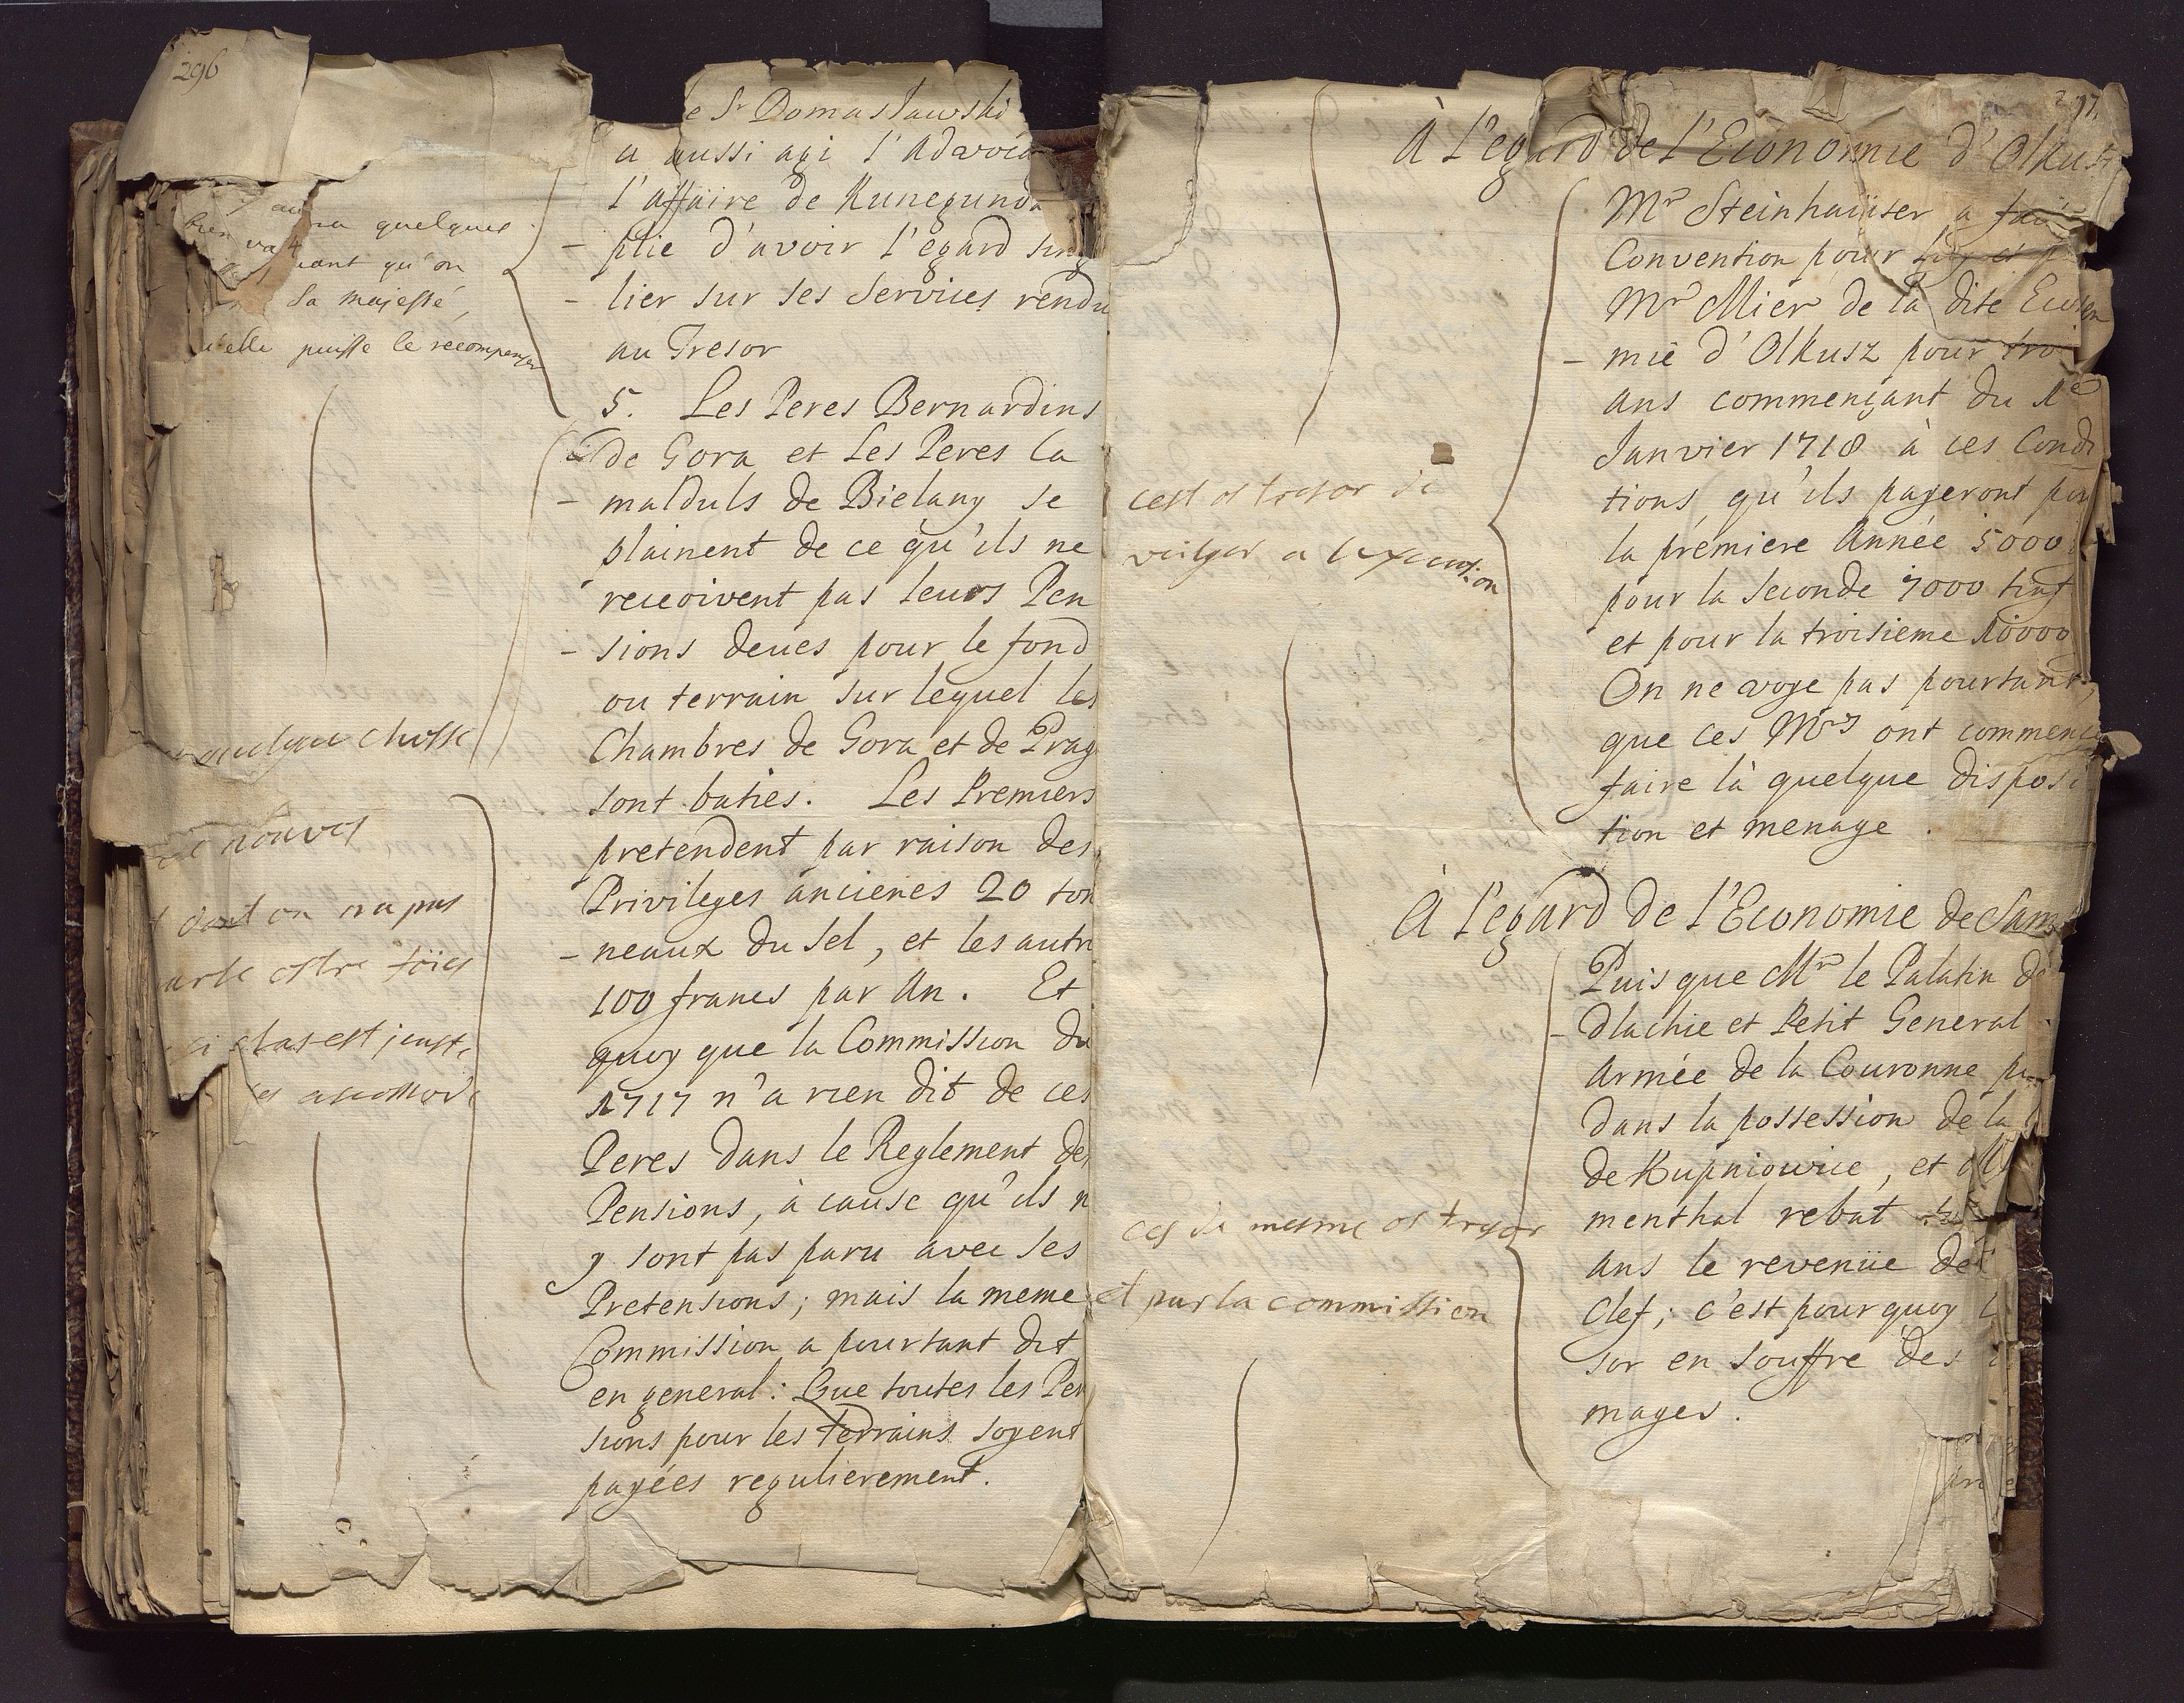 296
e Sr Domaslawski
a aussi agi l'
l'affaire de Kunegund
- plie d'avoir l'egard
- lier sur ses Services rendu
au Tresor
5. Les Peres Bernardins
de Gora et Les Peres Ca
- malduls de Bielany se
plainent de ce qu'ils ne
reçoivent pas leurs Pen
- sions deues pour le fond
ou terrain sur lequel les
Chambres de Gora et de Prag
sont baties. Les Premiers
pretendent par raison des
Privileges ancienes 20 ton
- neaux du Sel, et les autr
100 francs par An. Et
quoy que la Commission du
1717 n'a rien dit de ces
Peres dans le Reglement de
Pensions, à cause qu'ils n
y sont pas paru avec ses
Pretensions; mais la meme
Commission a pourtant dit
en general: Que toutes les Pen
sions pour les terrains soyent
payées regulierement.
quelque
qu'on
Sa majesté,
elle puisse le recompenser
quelque chosse
nouvos
dont on na pas
cest juste
297.
À l'egard de l'Economie d'Olkusz
Mr Steinhaüser a fait
Convention pour
Mr Mier de la dite Econ
- mie d'Olkusz pour
ans commençant du 1e
Janvier 1718 à ces Condi
tions, qu'ils payeront
la premiere Année 5000
pour la seconde 7000
et pour la troisieme 10000
On ne voye pas pourtant,
que ces Mrs ont commencé
faire là quelque disposi
tion et menage.
cest
a
À l'egard de l'Economie de
Puis que Mr le Palatin de
- dlachie et Petit General
Armée de la Couronne
dans la possession de la
de Kupniowice, et
menthal rebat
ans le revenüe de
Clef; c'est pour quoy
sor en souffre des
mages.
mesme
et par la commission